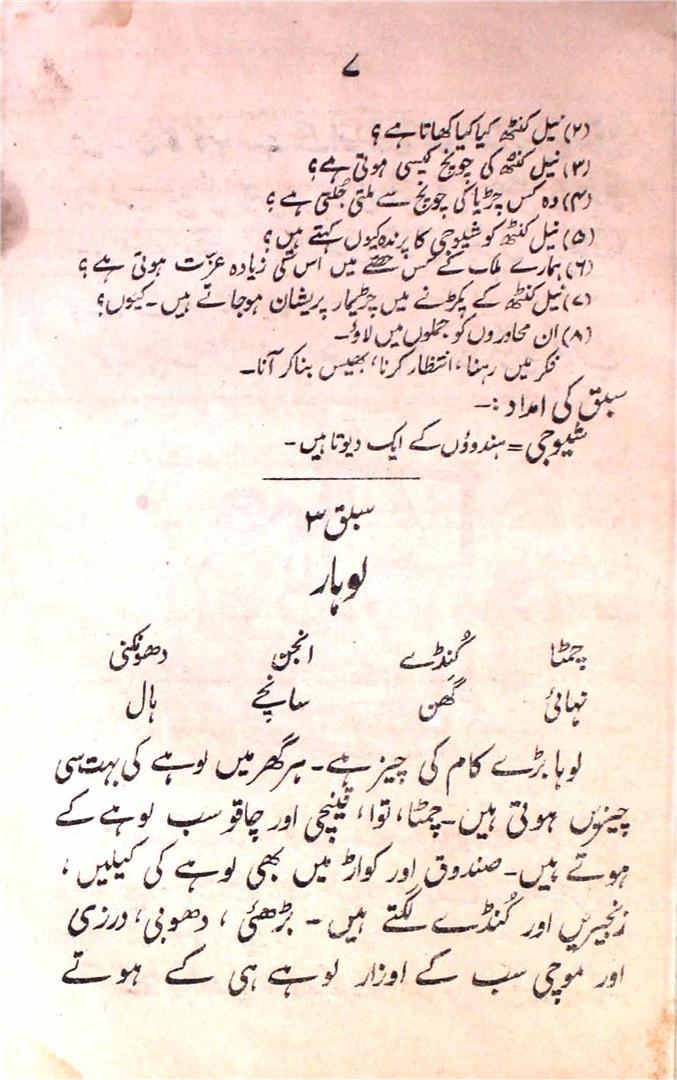 ۷
(۲) نیل کنٹھ کیا کیا کھاتا ہے؟
(۳) نیل کنٹھ کی چونچ کیسی ہوتی ہے؟
(۴) وہ کس چڑیا کی چونچ سے ملتی جُلتی ہے؟
(۵) نیل کنٹھ کو شیوجی کا پرندہ کیوں کہتے ہیں؟
(۶) ہمارے ملک کے کس حصّے میں اس کی زیادہ عزّت ہوتی ہے؟
(۷) نیل کنٹھ کے پکڑنے میں چڑیمار پریشان ہوجاتے ہیں۔ کیوں؟
(۸) ان محاوروں کو جملوں میں لاؤ۔
فکر میں رہنا، انتظار کرنا، بھیس بناکر آنا۔
سبق کی امداد :۔
شیوجی = ہندوؤں کے ایک دیوتا ہیں۔
سبق ۳
لوہار
چمٹا کُنڈے انجن دھونکنی
نہائی گھَن سانچے ہال
لوہا بڑے کام کی چیز ہے۔ ہر گھر میں لوہے کی بہت سی
چیزیں ہوتی ہیں۔ چمٹا، توا، قینچی اور چاقو سب لوہے کے
ہوتے ہیں۔ صندوق اور کواڑ میں بھی لوہے کی کیلیں،
زنجیریں اور کُنڈے لگتے ہیں۔ بڑھئی، دھوبی، درزی
اور موچی سب کے اوزار لوہے ہی کے ہوتے